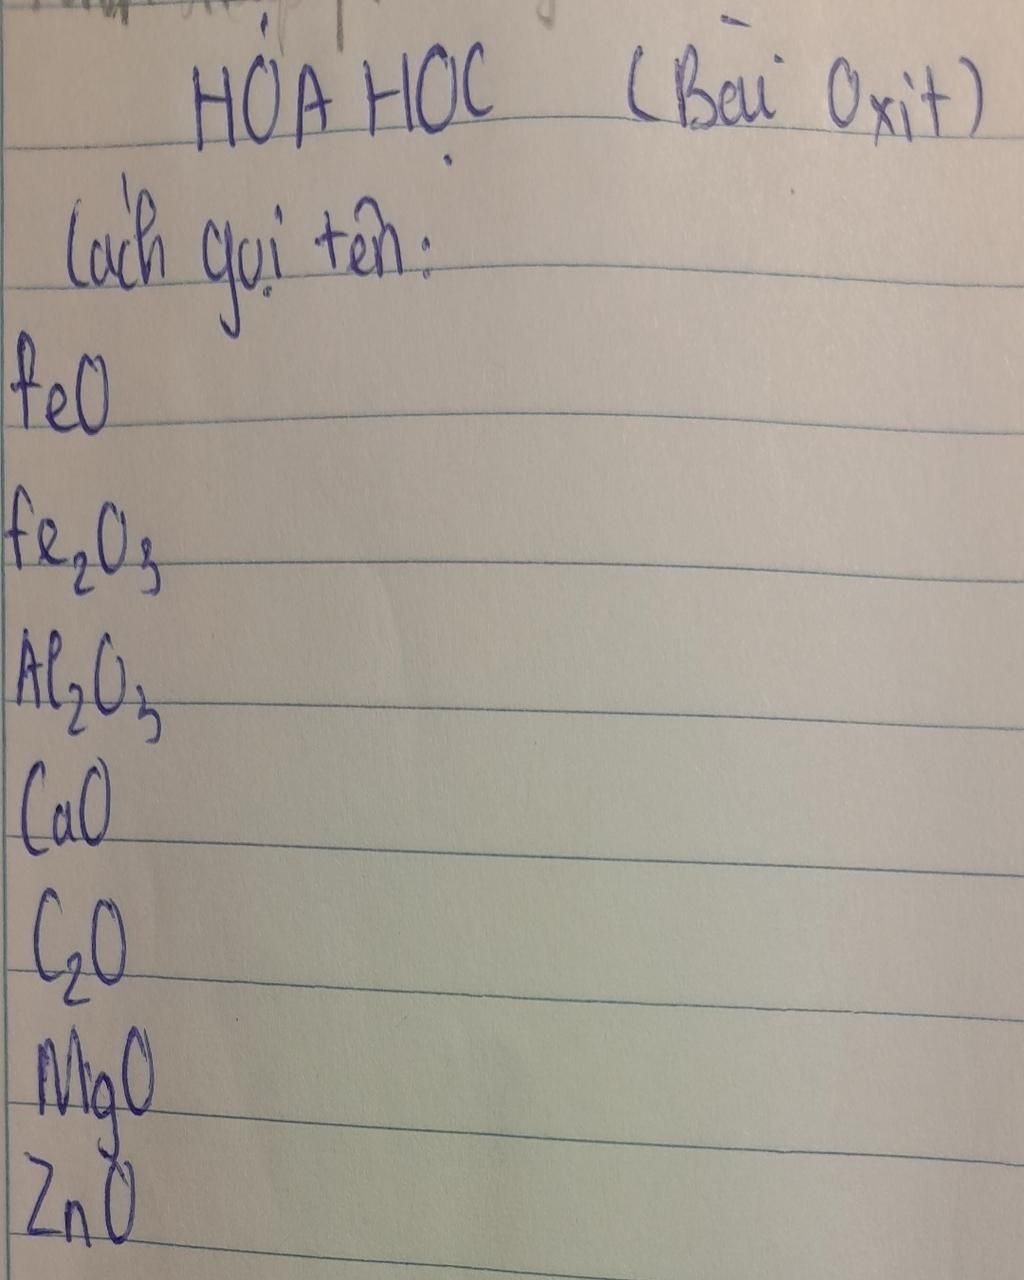 HÓA HỌC (Bài Oxit)
Cách gọi tên:
FeO
Fe₂O₃
Al₂O₃
CaO
C₂O
MgO
ZnO